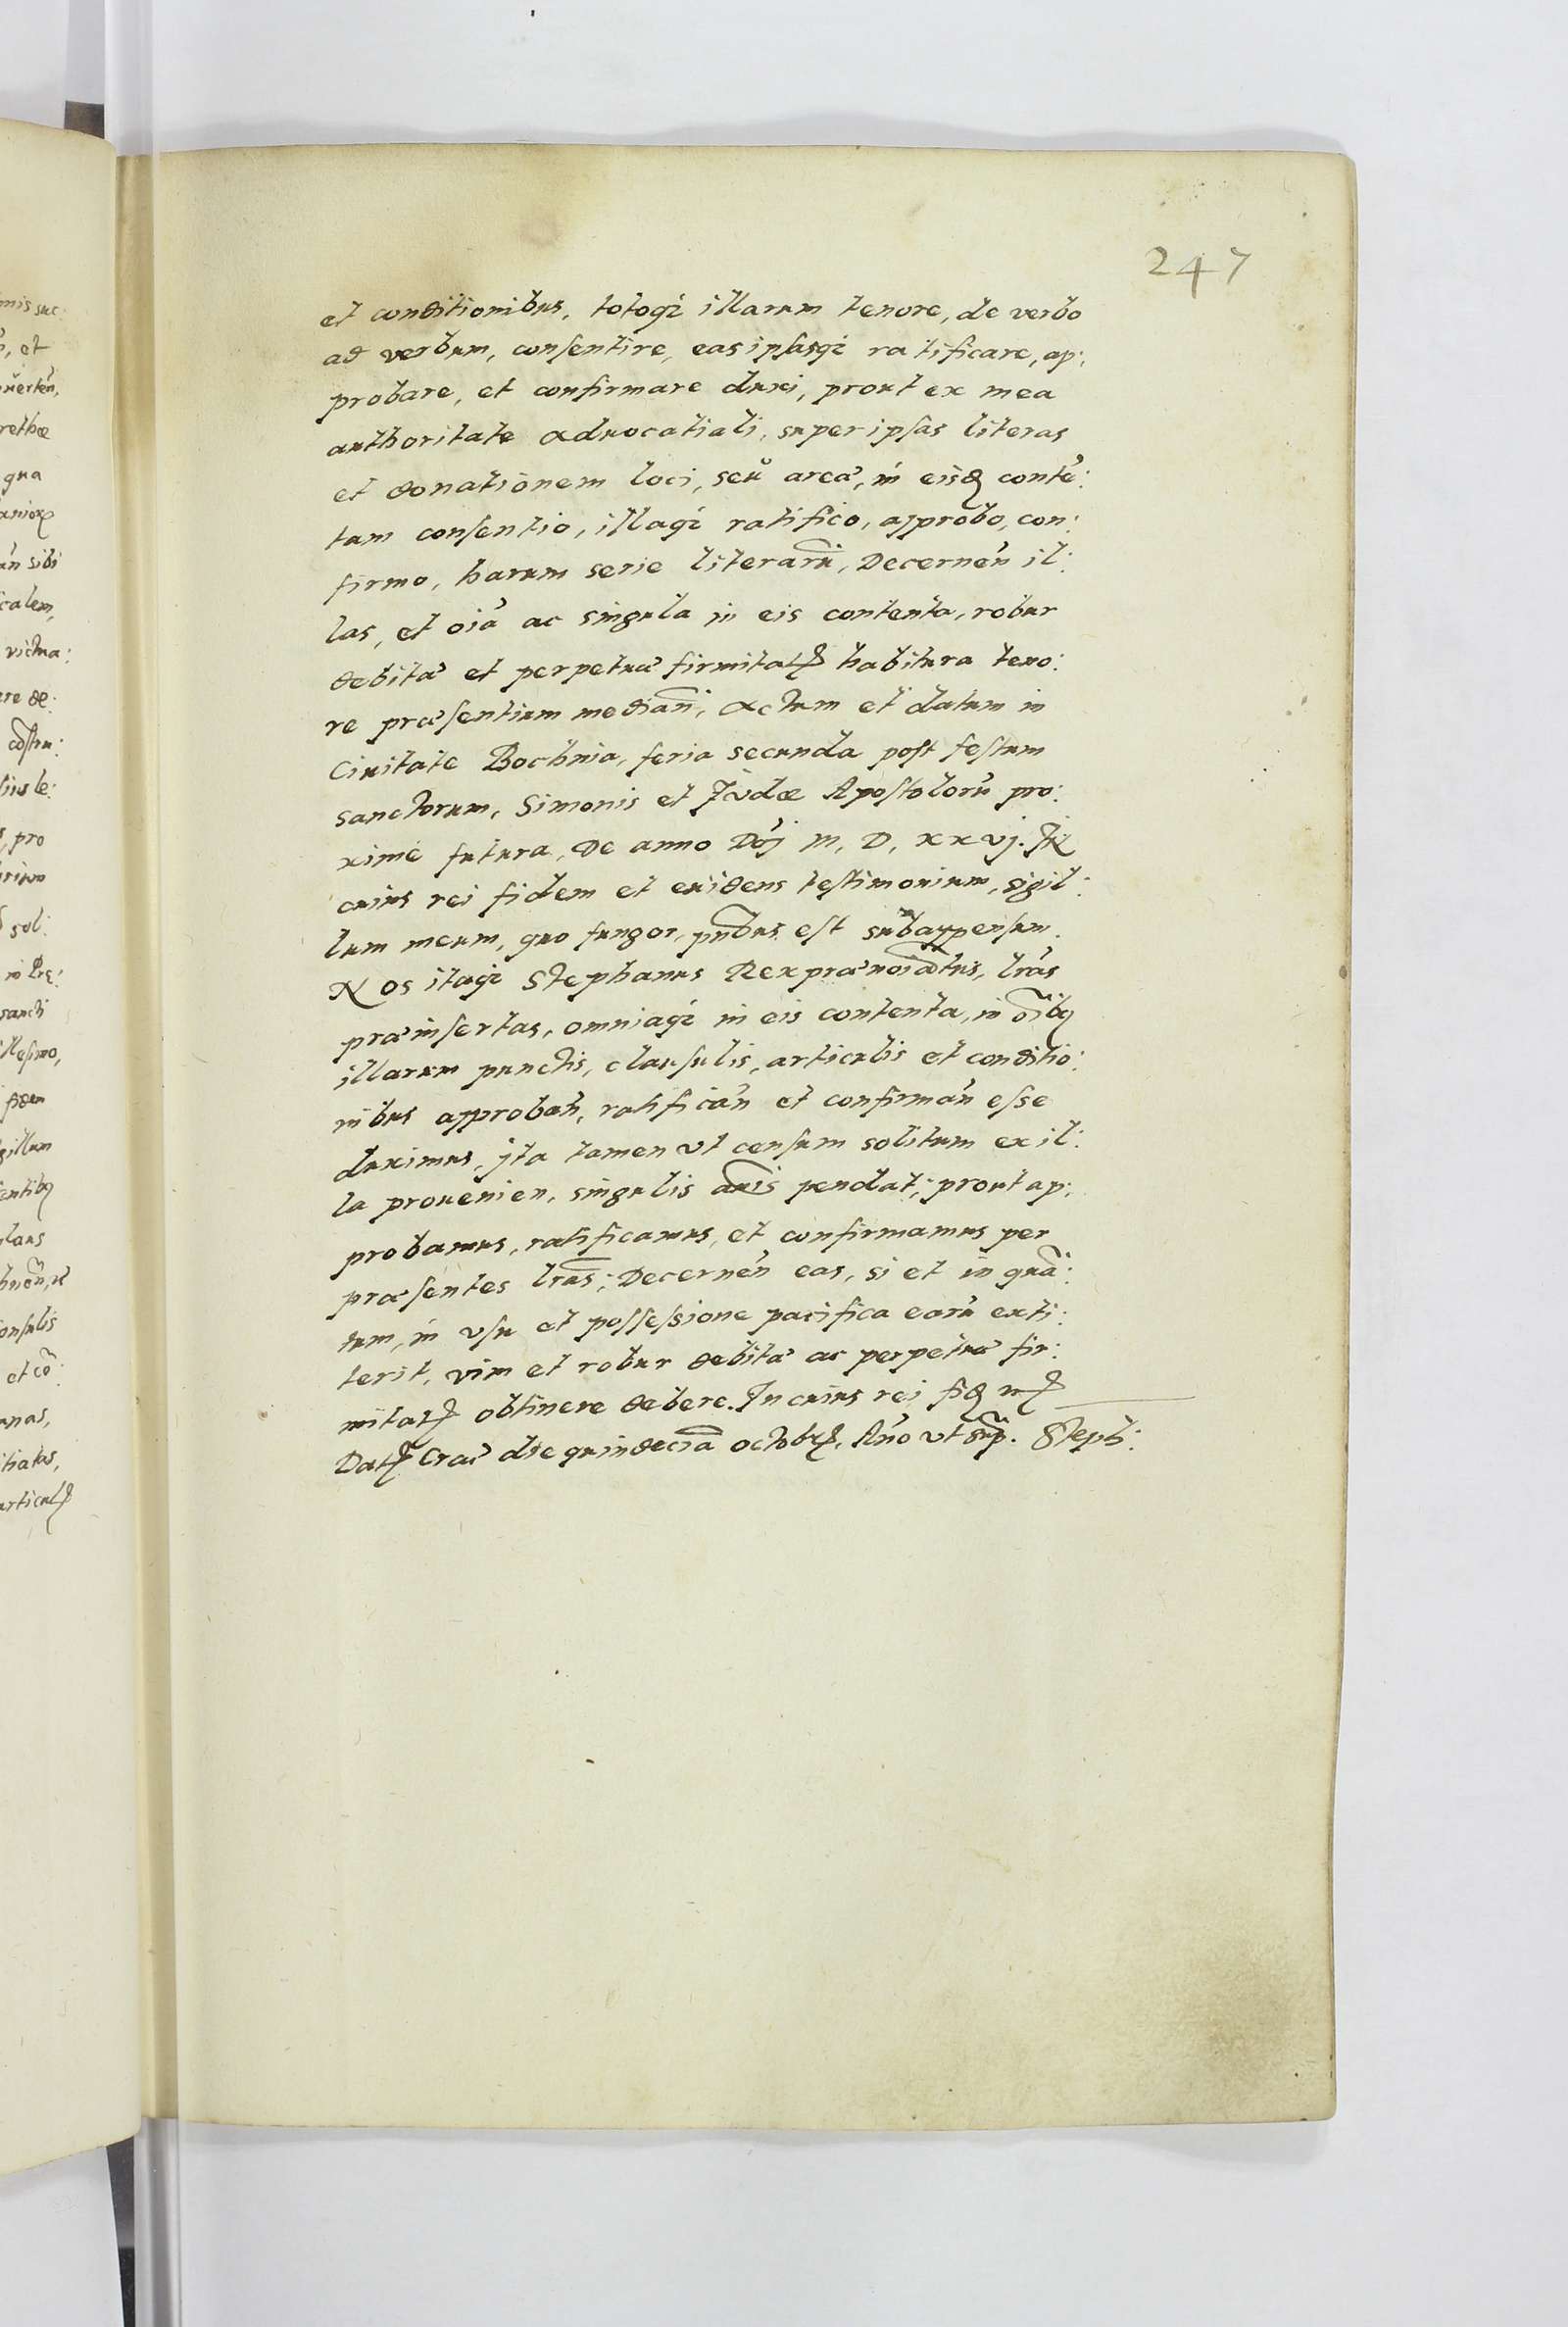 247
et conditionibus, totoq₃ illarum tenore, de verbo
ad verbum, consentire, eas ipsasq₃ ratificare, ap:
probare, et confirmare duxi, prout ex mea
authoritate aduocatiali, super ipsas literas
et donationem loci, seu areæ, in eisđ contē:
tam consentio, illaq₃ ratifico, approbo, con:
firmo, harum serie literarū, Decerneñ il:
las, et oīa ac singula in eis contenta, robur
debitæ et perpetuæ firmitatꝭ habitura teno:
re præsentium mediañ, Actum et datum in
Ciuitate Bochnia, feria secunda post festum
sanctorum, Simonis et Judæ Apostolorū pro:
xime futura, De anno Dn̄j M, D, xxvj. In
cuius rei fidem et euidens testimonium, sigil:
lum meum, quo fungor, pn̄tibus est subappensum.
Nos itaq₃ Stephanus Rex prænoīatus, lr̄as
præinsertas, omniaq₃ in eis contenta, in oībꝰ
illarum punctis, clausulis, articulis et conditio:
nibus approbañ, ratificañ et confirmañ esse
duximus, jta tamen vt censum solitum ex il:
la prouenien, singulis annis pendat; prout ap:
probamus, ratificamus, et confirmamus per
præsentes lr̄as; Decerneñ eas, si et in quā:
tum, in vsu et possessione pacifica earū exti:
terit, vim et robur debitæ ac perpetuæ fir:
mitatꝭ obtinere debere. In cuius rei fiđ
Datꝭ Crac̄ die quindecīa octobrꝭ. Año vt supr̄. Steph:
mis suc:
, et
rethæ
qua
añ sibi
calem,
victua:
re de:
cōstru:
lius le:
, pro
sol:
sancti
llesimo,
fidem
gillum
entibꝰ
onsulis
et cō:
anas,
itiatas,
articulꝭ